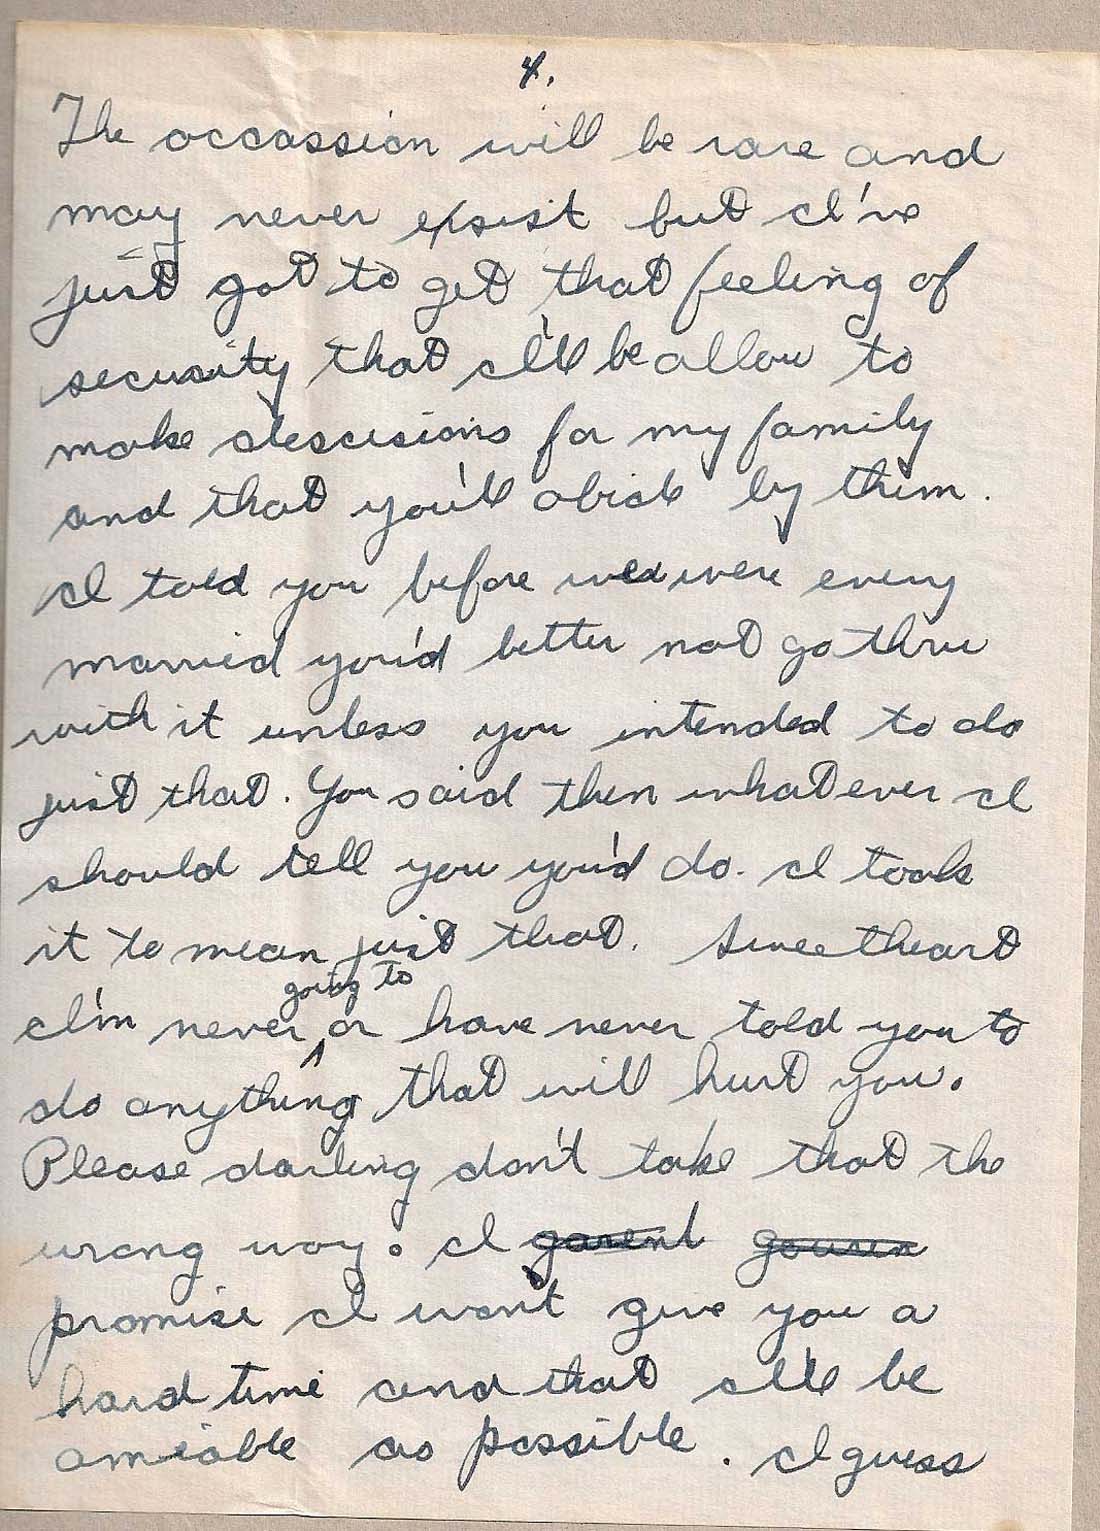 4.
The occassion will be rare and
may never exsist but I've
just got to get that feeling of
security that I'll be allow to
make descisions for my family
and that you'll abide by them.
I told you before we were every
married you'd better not go thru
with it unless you intended to do
just that. You said then whatever I
should tell you you'd do. I took
it to mean just that. Sweetheart
going to
I'm never, or have never told you to
do anything that will hurt you.
Please darling don't take that the
wrong way. I garent
promise I won't give you a
hard time and that I'll be
amiable as possible. I guess